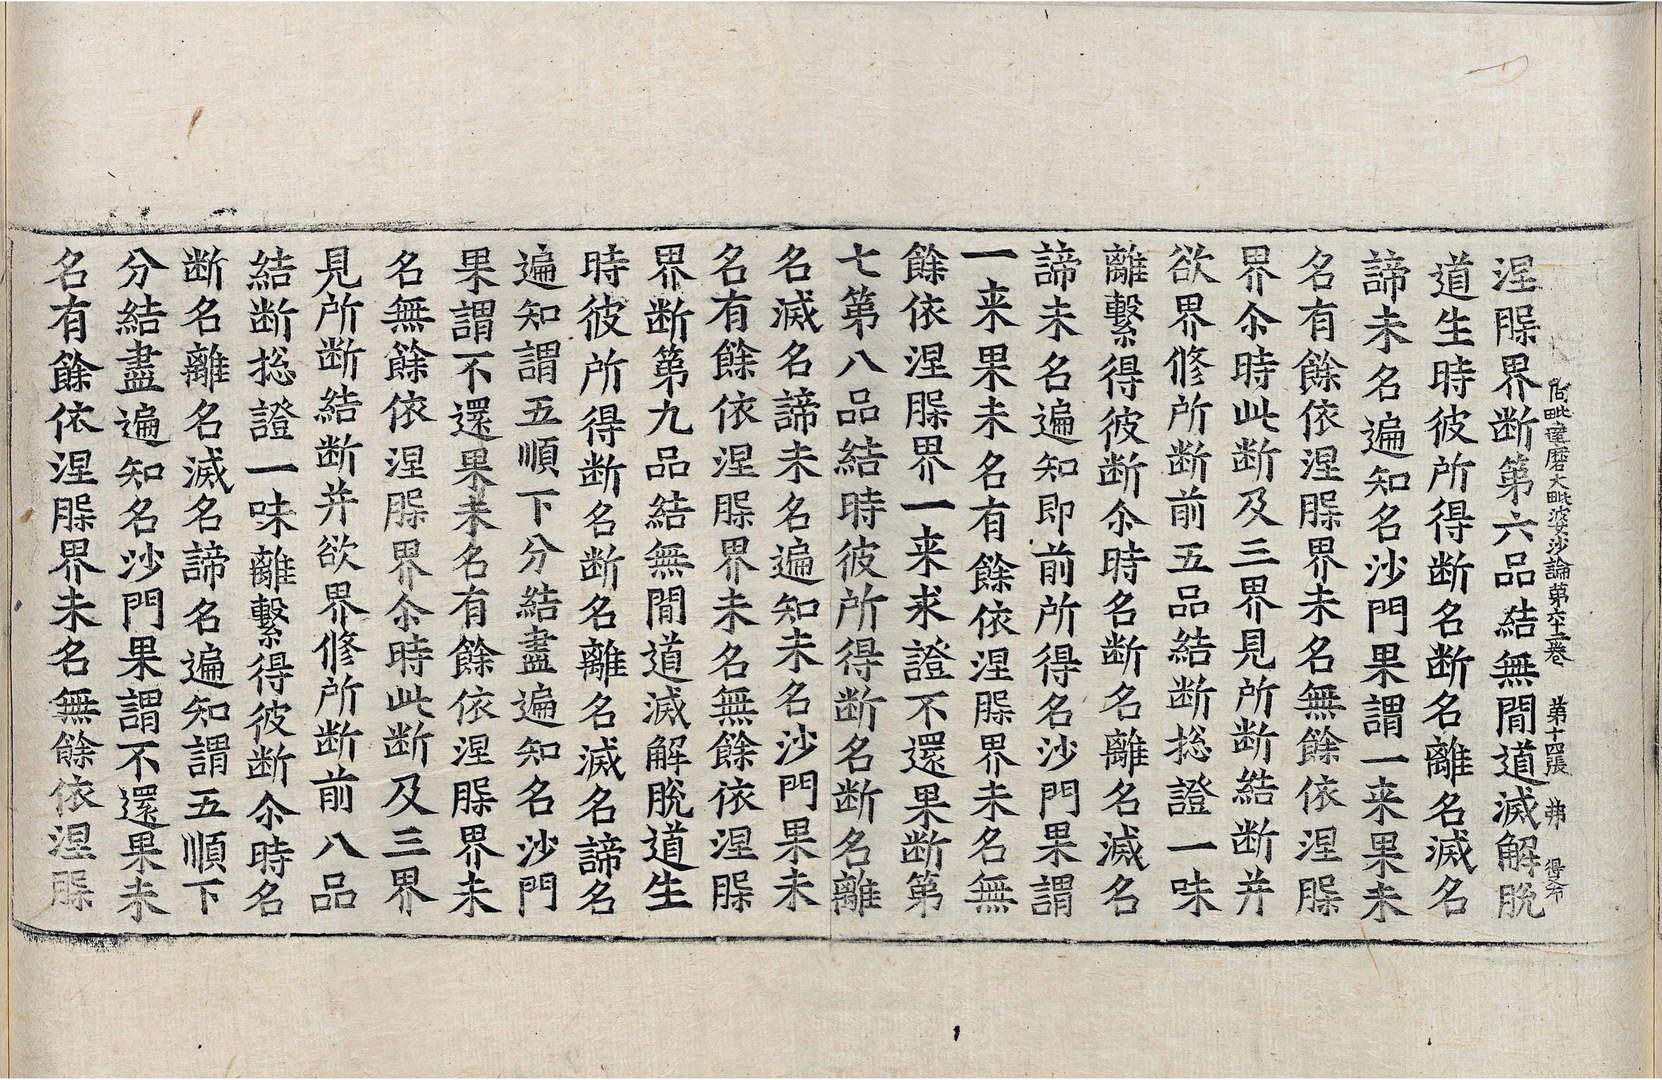 阿毗達磨大毗婆沙論第六十三卷 第十四張 弗
涅槃界断第六品結無間道滅解脫
道生時彼所得断名断名離名滅名
諦未名遍知名沙門果謂一来果未
名有餘依涅槃界未名無餘依涅槃
界尒時此断及三界見所断結断并
欲界修所断前五品結断捴證一味
離繫得彼断尒時名断名離名滅名
諦未名遍知即前所得名沙門果謂
一来果未名有餘依涅槃界未名無
餘依涅槃界一来求證不還果断第
七第八品結時彼所得断名断名離
名滅名諦未名遍知未名沙門果未
名有餘依涅槃界未名無餘依涅槃
界断第九品結無間道滅解脫道生
時彼所得断名断名離名滅名諦名
遍知謂五順下分結盡遍知名沙門
果謂不還果未名有餘依涅槃界未
名無餘依涅槃界尒時此断及三界
見所断結断并欲界修所断前八品
結断捴證一味離繫得彼断尒時名
断名離名滅名諦名遍知謂五順下
分結盡遍知名沙門果謂不還果未
名有餘依涅槃界未名無餘依涅槃